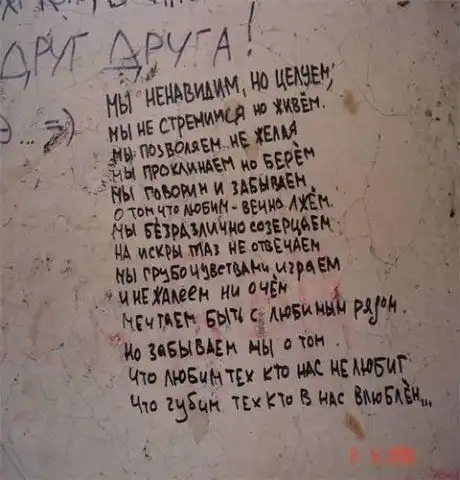 ДРУГ ДРУГА!
МЫ НЕНАВИДИМ, НО ЦЕЛУЕМ,
МЫ НЕ СТРЕМИМСЯ НО ЖИВЁМ.
МЫ ПОЗВОЛЯЕМ НЕ ЖЕЛАЯ
МЫ ПРОКЛИНАЕМ НО БЕРЁМ
МЫ ГОВОРИМ И ЗАБЫВАЕМ
О ТОМ ЧТО ЛЮБИМ - ВЕЧНО ЛЖЁМ.
МЫ БЕЗРАЗЛИЧНО СОЗЕРЦАЕМ
НА ИСКРЫ ГЛАЗ НЕ ОТВЕЧАЕМ
МЫ ГРУБО ЧУВСТВАМИ ИГРАЕМ
И НЕ ЖАЛЕЕМ НИ О ЧЁМ
МЕЧТАЕМ БЫТЬ С ЛЮБИМЫМ РЯДОМ.
НО ЗАБЫВАЕМ МЫ О ТОМ.
ЧТО ЛЮБИМ ТЕХ КТО НАС НЕ ЛЮБИТ
ЧТО ГУБИМ ТЕХ КТО В НАС ВЛЮБЛЁН...